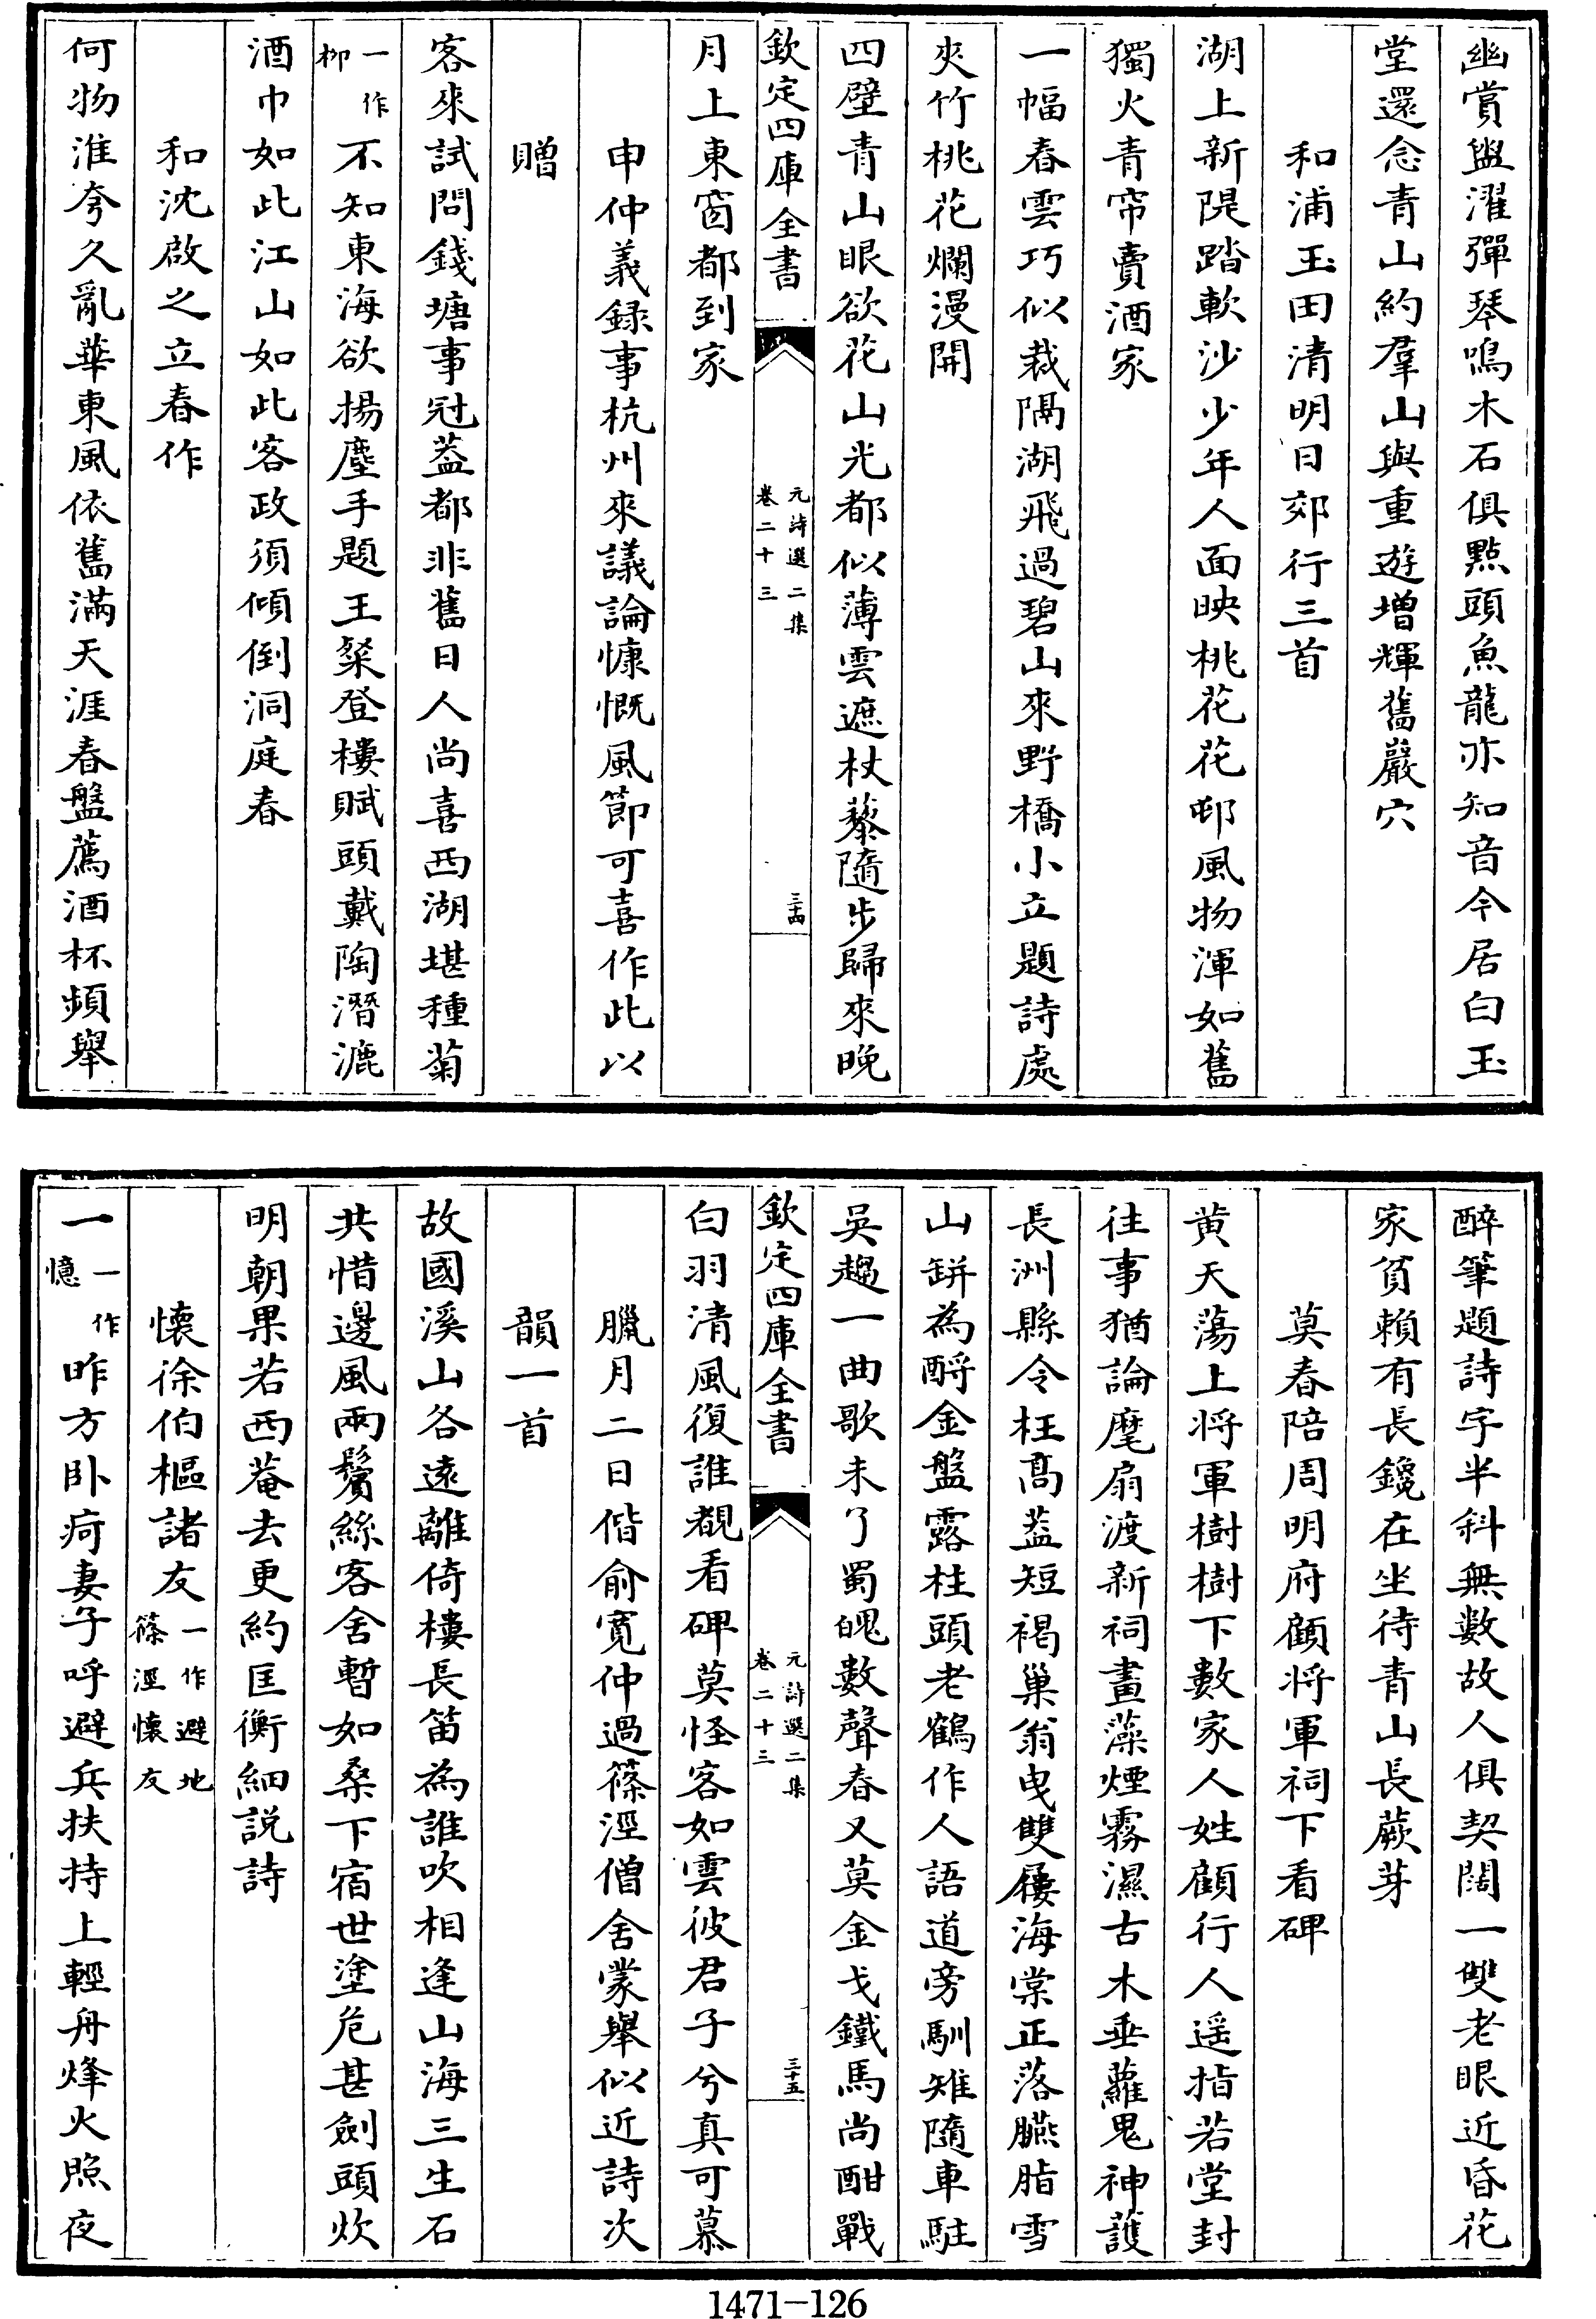 幽賞盥濯彈琴鳴木石俱點頭魚龍亦知音今居白玉
堂還念青山約羣山與重遊增輝舊巖穴
和浦玉田清明日郊行三首
湖上新隄踏軟沙少年人面映桃花花邨風物渾如舊
獨火青帘賣酒家
一幅春雲巧似裁隔湖飛過碧山來野橋小立題詩處
夾竹桃花爛漫開
四壁青山眼欲花山光都似薄雲遮杖藜隨步歸來晚
欽定四庫全書
元詩選二集
卷二十三
三十四
月上東窗都到家
申仲義録事杭州來議論慷慨風節可喜作此以
贈
客來試問錢塘事冠葢都非舊日人尚喜西湖堪種菊
一作
柳
不知東海欲揚塵手題王粲登樓賦頭戴陶潛漉
酒巾如此江山如此客政須傾倒洞庭春
和沈啟之立春作
何物淮夸久亂華東風依舊滿天涯春盤薦酒杯頻舉
醉筆題詩字半斜無數故人俱契闊一雙老眼近昏花
家貧賴有長鑱在坐待青山長蕨芽
莫春陪周明府顧將軍祠下看碑
黄天蕩上将軍樹樹下數家人姓顧行人遥指若堂封
往事猶論麾扇渡新祠畫藻煙霧濕古木垂蘿鬼神護
長洲縣令枉髙葢短褐巢翁曳雙屨海棠正落臙脂雪
山缾為酹金盤露柱頭老鶴作人語道旁馴雉隨車駐
吳趨一曲歌未了蜀魄數聲春又莫金戈鐵馬尚酣戰
欽定四庫全書
元詩選二集
卷二十三
三十五
白羽清風復誰覩看碑莫怪客如雲彼君子兮真可慕
臘月二日偕俞寛仲過篠涇僧舍蒙舉似近詩次
韻一首
故國溪山各遠離倚樓長笛為誰吹相逢山海三生石
共惜邊風兩鬢絲客舍暫如桑下宿世塗危甚劍頭炊
明朝果若西菴去更約匡衡細説詩
懐徐伯樞諸友
一作避地
篠涇懐友
一
一作
憶
昨方卧疴妻子呼避兵扶持上輕舟烽火照夜
1471-126